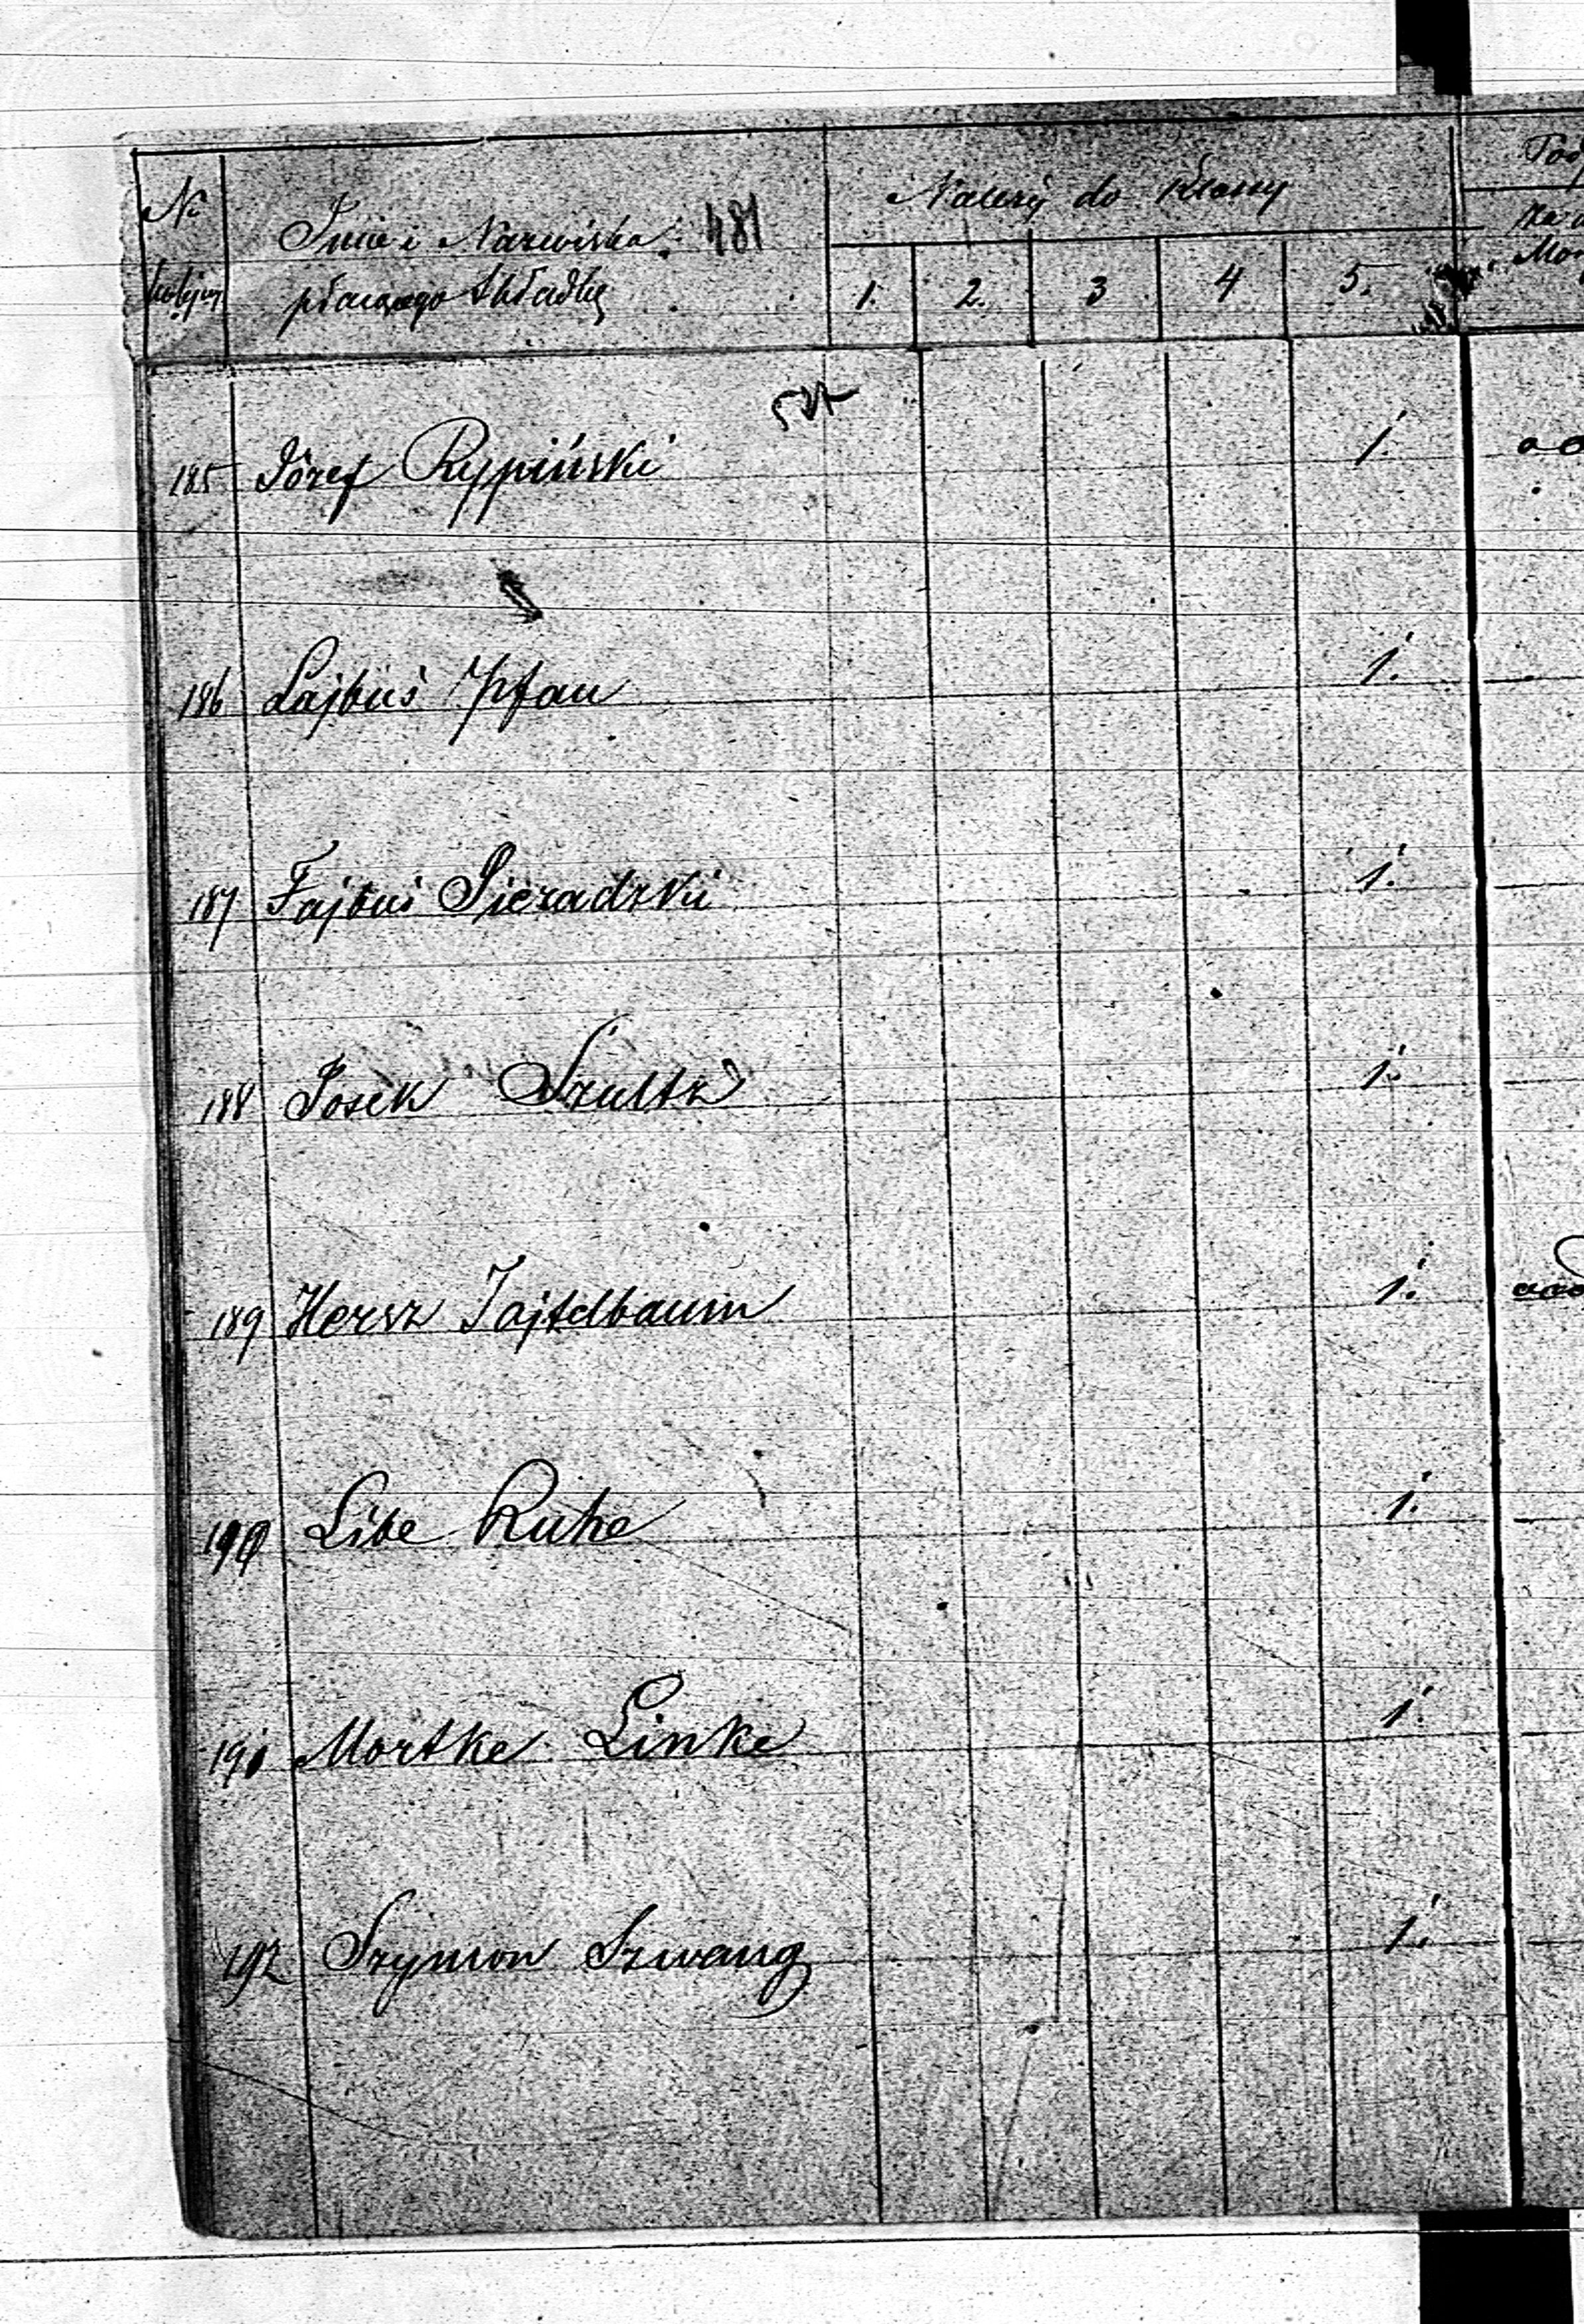 N
kolejny
Imie i Nazwisko 481
płacącego Składkę
Należy do Klassy
1. 2. 3 4 5.
185 Józef Rypiński 1.
186 Lajbuś Pfau 1.
187 Fajbuś Sieradzki 1.
188 Josek Szultz 1.
189 Hersz Tajtelbaum 1.
190 Libe Kuhe 1.
191 Mortke Linke 1.
192 Szymon Szwang 1.